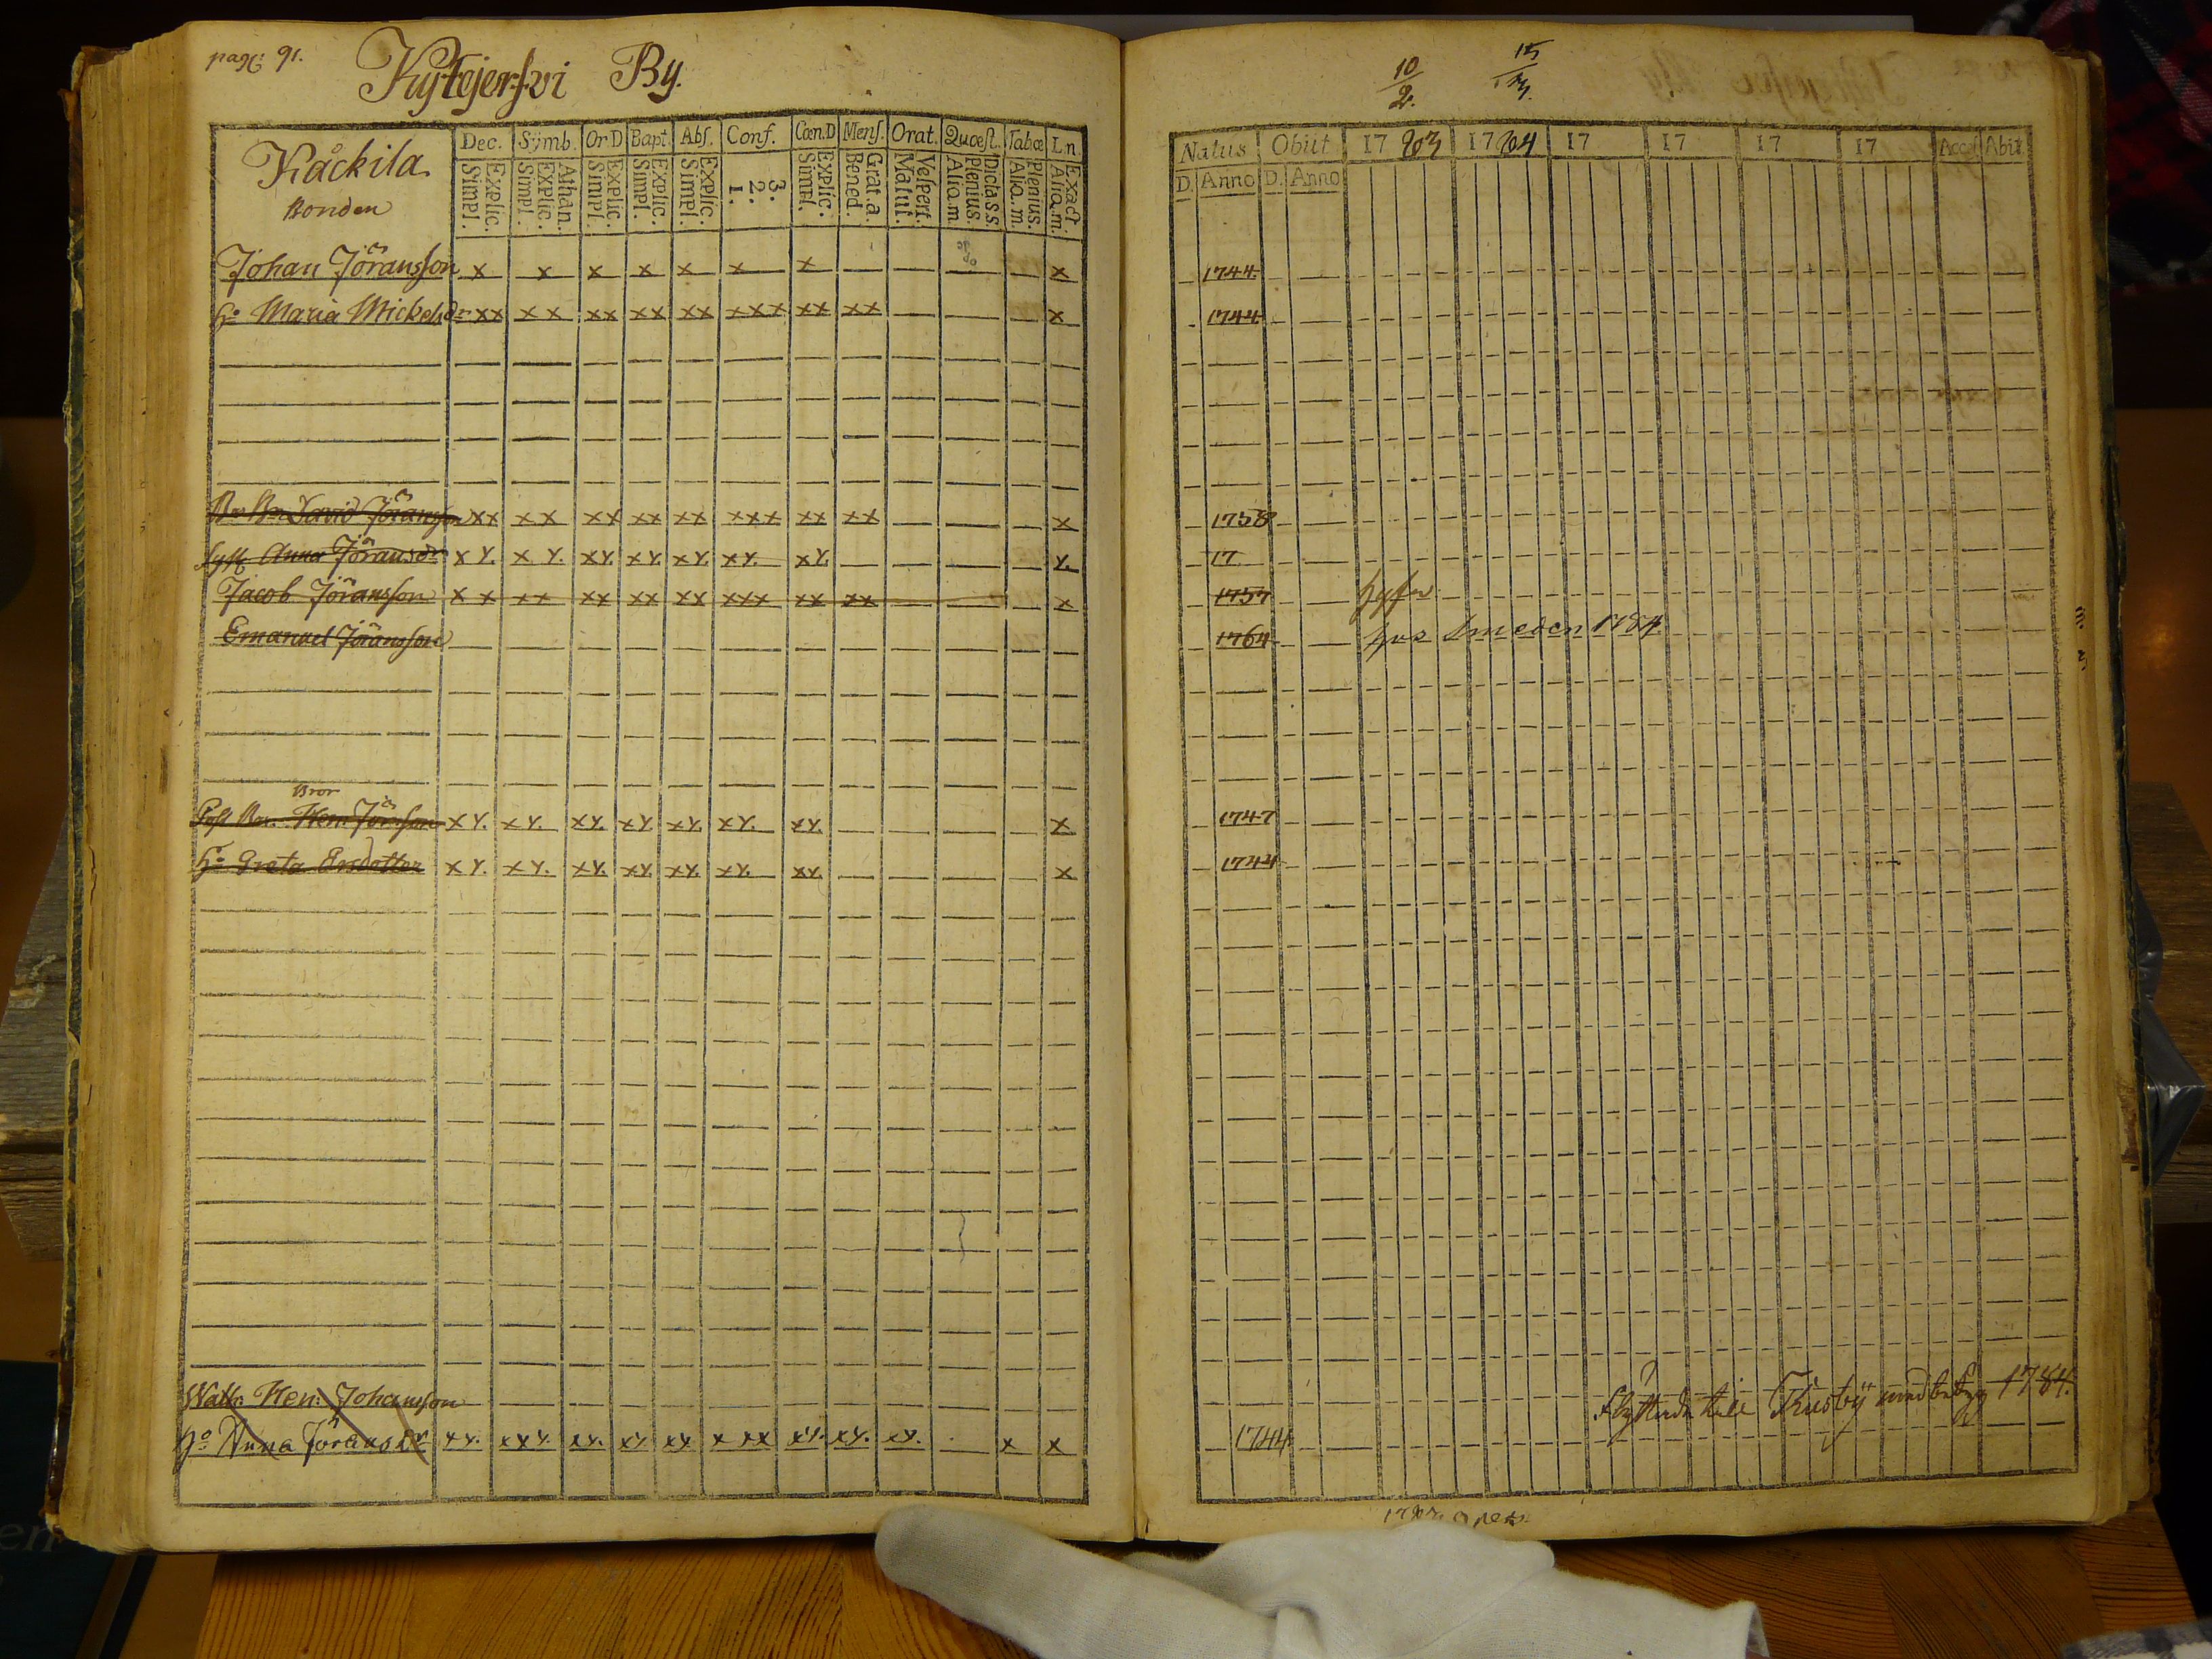 pag: 91.
Kytejerfvi By.
Kåckila
Bonden
Dec. Symb. Or D Bapt. Abſ. Conf. Cœn.D Menſ. Orat. Quœſt. Tabœ L.n.
Explic. Simpl.
Athan. Explic. Simpl.
Explic. Simpl.
Explic. Simpl.
Explic. Simpl.
3. 2. 1.
Explic. Simpl.
Grat.a. Bened.
Veſpert. Matut.
Dicta s.s. Plenius. Aliq.m.
Plenius. Aliq.m.
Exact. Aliq.m.
Johan Jöransſon x x x x x x x x
Hº Maria Mickelsdr xx xx xx xx xx xxx xx xx x
David Jöransſon xx xx xx xx xx xxx xx xx x
Anna Jöransdr x y. x y. xy. xy. xy. xy. xy. y.
Jacob Jöransſon x x xx xx xx xx xxx xx xx x
Emanuel Jöransſon
Bror
Hen: Jörsſon xy. xy. xy. xy. xy. xy. xy. x
Hº Greta Ersdotter xy. xy. xy. xy. xy. xy. xy. x
Hen: Johansſon
Hº Anna Jöransdr xy. xxy. xy. xy. xy x xx xy. xy. xy. x x
10/2.
Natus Obiit 17 83 17 84 17 17 17 17 Acceſ. Abiit
D. Anno D. Anno
1744
1744
1758
17
1757
1764 hos Smeden 1784
1747
1744
Flyttade till Kusby med betyg 1784.
1744